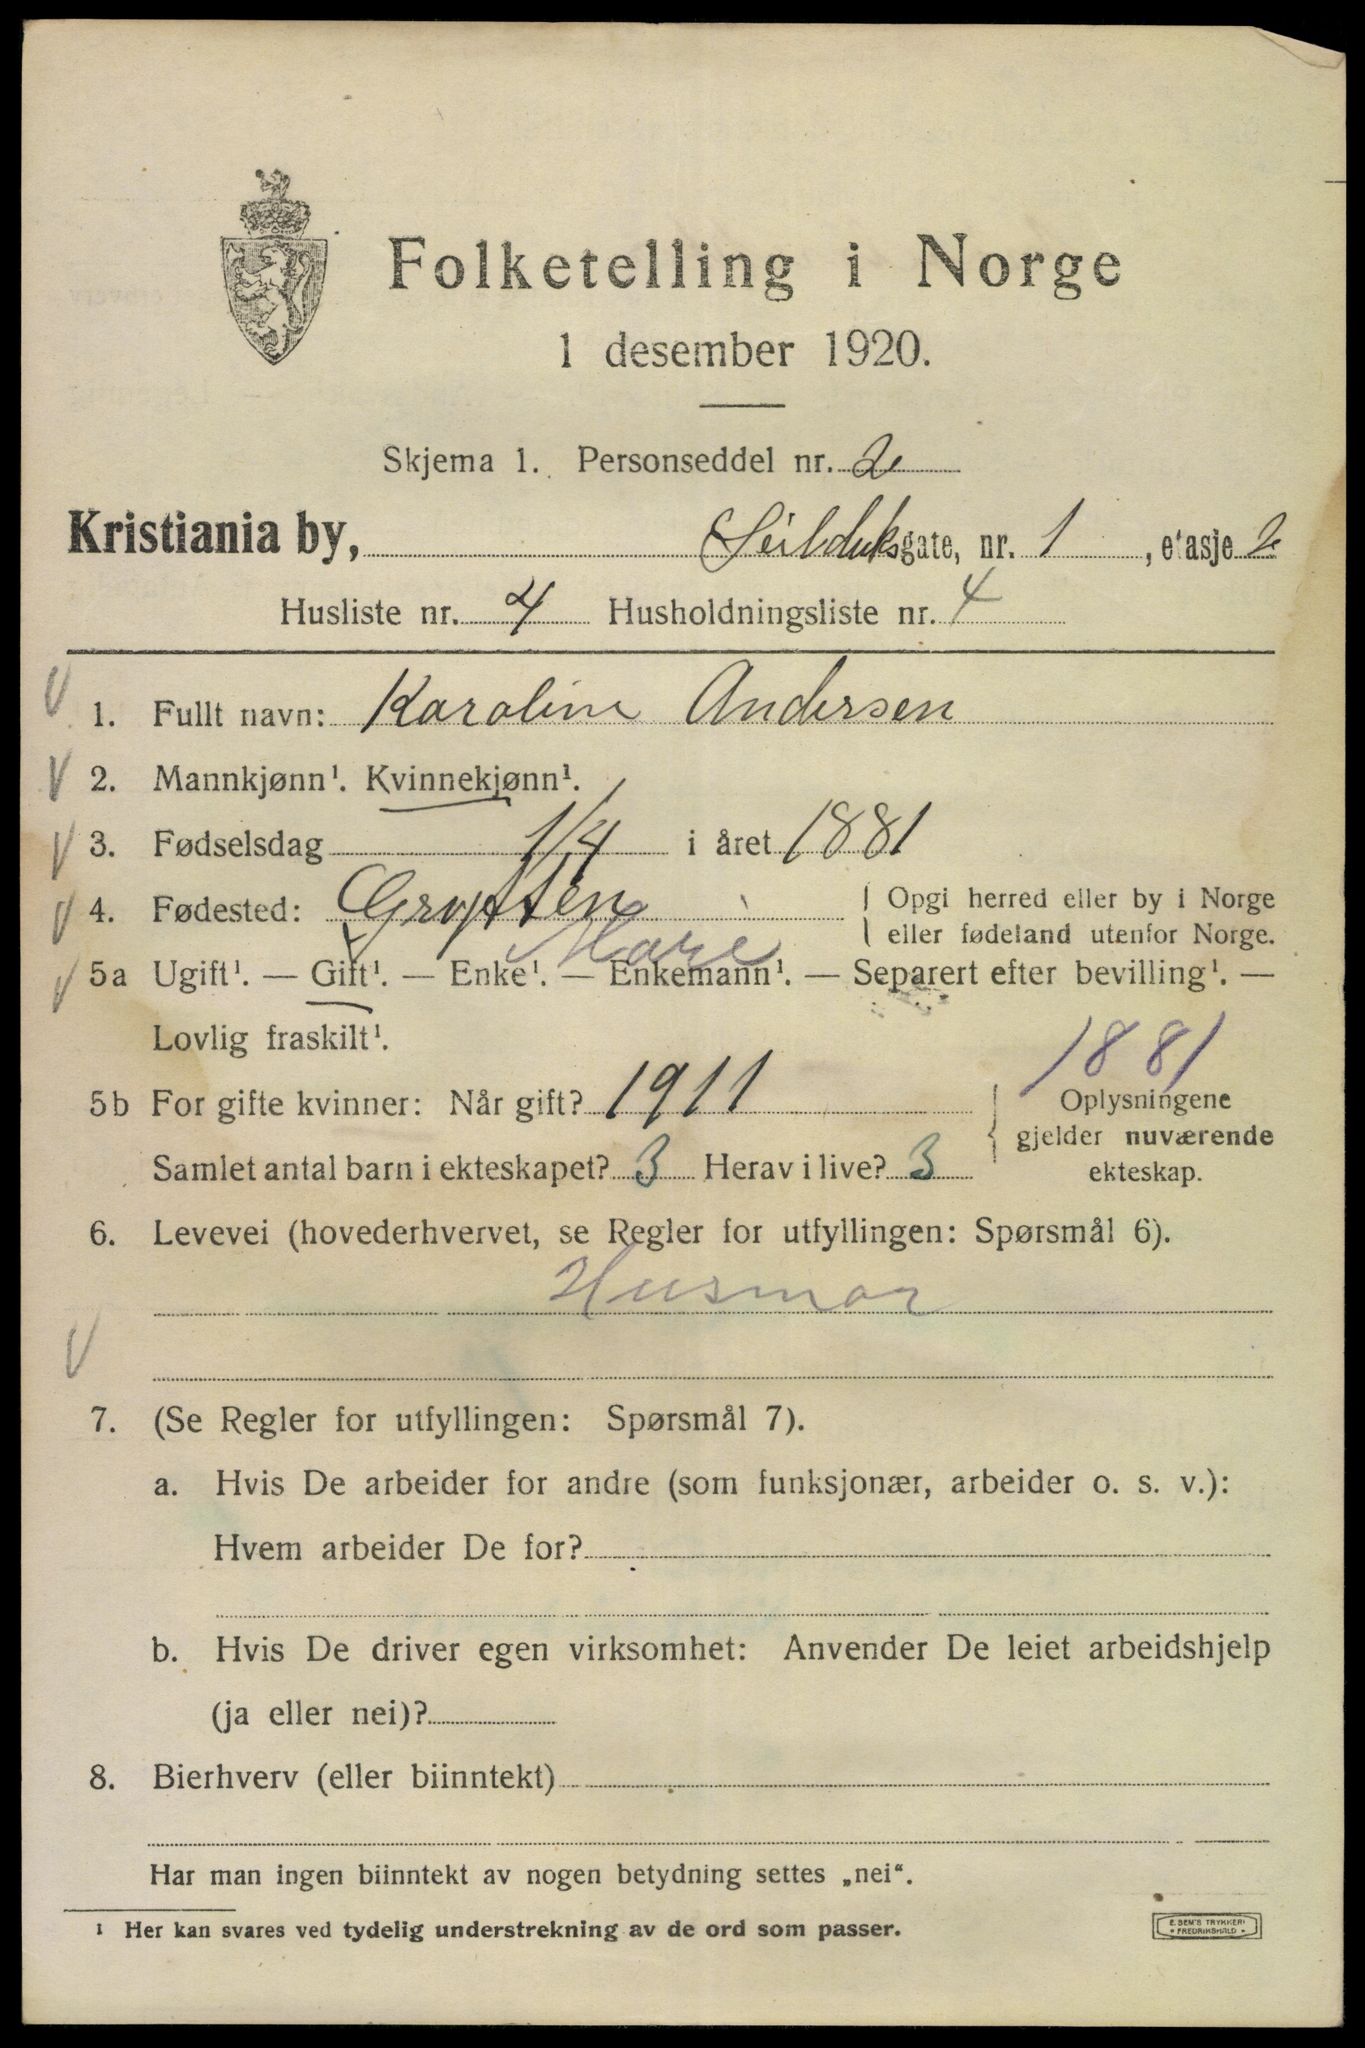 Folketelling i Norge
1 desember 1920.
Skjema 1. Personseddel nr. 2
Kristiania by, Seilduksgate, nr. 1, etasje 2
Husliste nr. 4 Husholdningsliste nr. 4
1. Fullt navn: Karoline Andersen
2. Mannkjønn¹. Kvinnekjønn¹.
3. Fødselsdag 1/4 i året 1881
4. Fødested: Grytten Opgi herred eller by i Norge
eller fødeland utenfor Norge.
Møre
5a Ugift¹. — Gift¹. — Enke¹. — Enkemann¹. — Separert efter bevilling¹. —
Lovlig fraskilt¹.
1881
5b For gifte kvinner: Når gift? 1911 Oplysningene
gjelder nuværende
Samlet antal barn i ekteskapet? 3 Herav i live? 3 ekteskap.
6. Levevei (hovederhvervet, se Regler for utfyllingen: Spørsmål 6).
Husmor
7. (Se Regler for utfyllingen: Spørsmål 7).
a. Hvis De arbeider for andre (som funksjonær, arbeider o. s. v.):
Hvem arbeider De for?
b. Hvis De driver egen virksomhet: Anvender De leiet arbeidshjelp
(ja eller nei)?
8. Bierhverv (eller biinntekt)
Har man ingen biinntekt av nogen betydning settes „nei“.
¹ Her kan svares ved tydelig understrekning av de ord som passer.
E. SEM'S TRYKKERI
FREDRIKSHALD